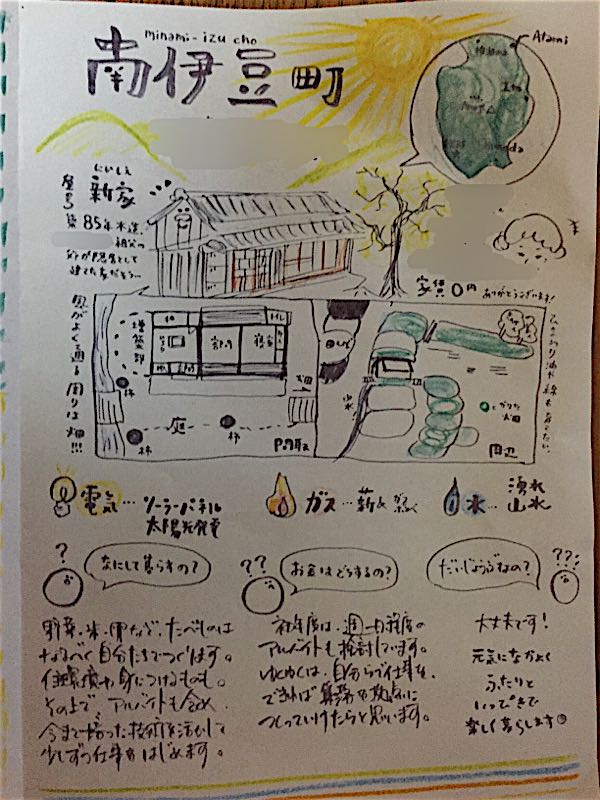 minami-izu cho
南伊豆町
Atami
Ito
屋号
にいしえ
新家
築85年木造、
祖父の
父が隠居として
建てた家だそう…
家賃0円 ありがとうございます!
風がよく通る 周りは畑!!!
増築部
庭
柿
柿
柿
畑
山水
畑
周辺
電気…ソーラーパネル
太陽光発電
ガス…薪
水…湧水
山水
?
なにして暮らすの?
??
お金はどうするの?
だいじょうぶなの?
???
野菜・米・卵など、たべものは
なるべく自分たちでつくります。
住環境や身につけるものも。
その上で、アルバイトも含め
今まで培った技術を活かして
少しずつ仕事をはじめます。
初年度は、週一日程度の
アルバイトも検討しています。
ゆくゆくは、自分らで仕事を、
できれば
つくっていけたらと思います。
大丈夫です!
元気になかよく
ふたりと
いっぴきで
楽しく暮らします